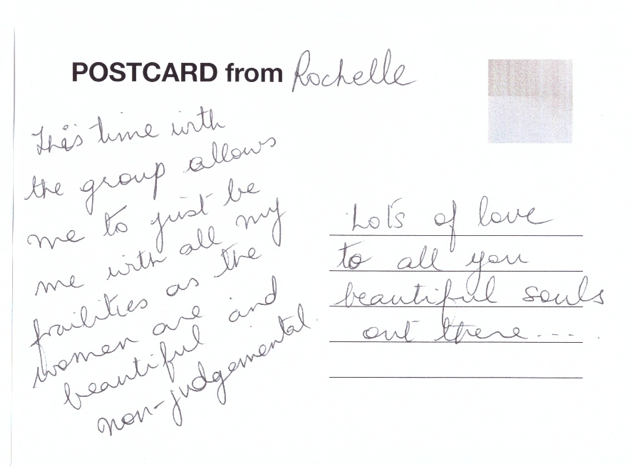 POSTCARD from Rochelle
This time with
the group allows
me to just be
me with all my
frailities as the
women are and
beautiful
non-judgemental.
Lots of love
to all you
beautiful souls
out there....